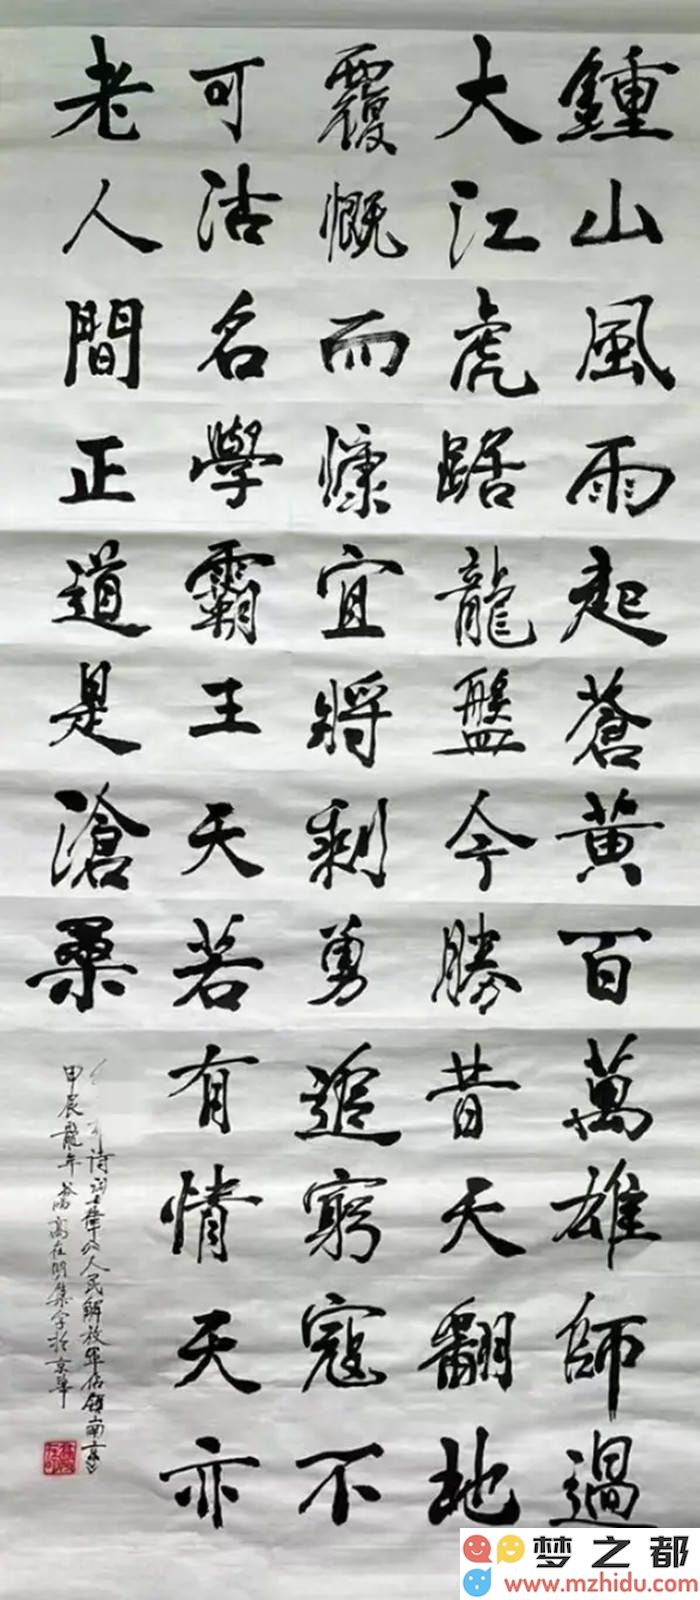 鍾山風雨起蒼黃百萬雄師過
大江虎踞龍盤今勝昔天翻地
覆慨而慷宜將剩勇追窮寇不
可沽名學霸王天若有情天亦
老人間正道是滄桑
詩詞七律人民解放軍佔領南京
甲辰龍年高在明集字於京華
梦之都
www.mzhidu.com